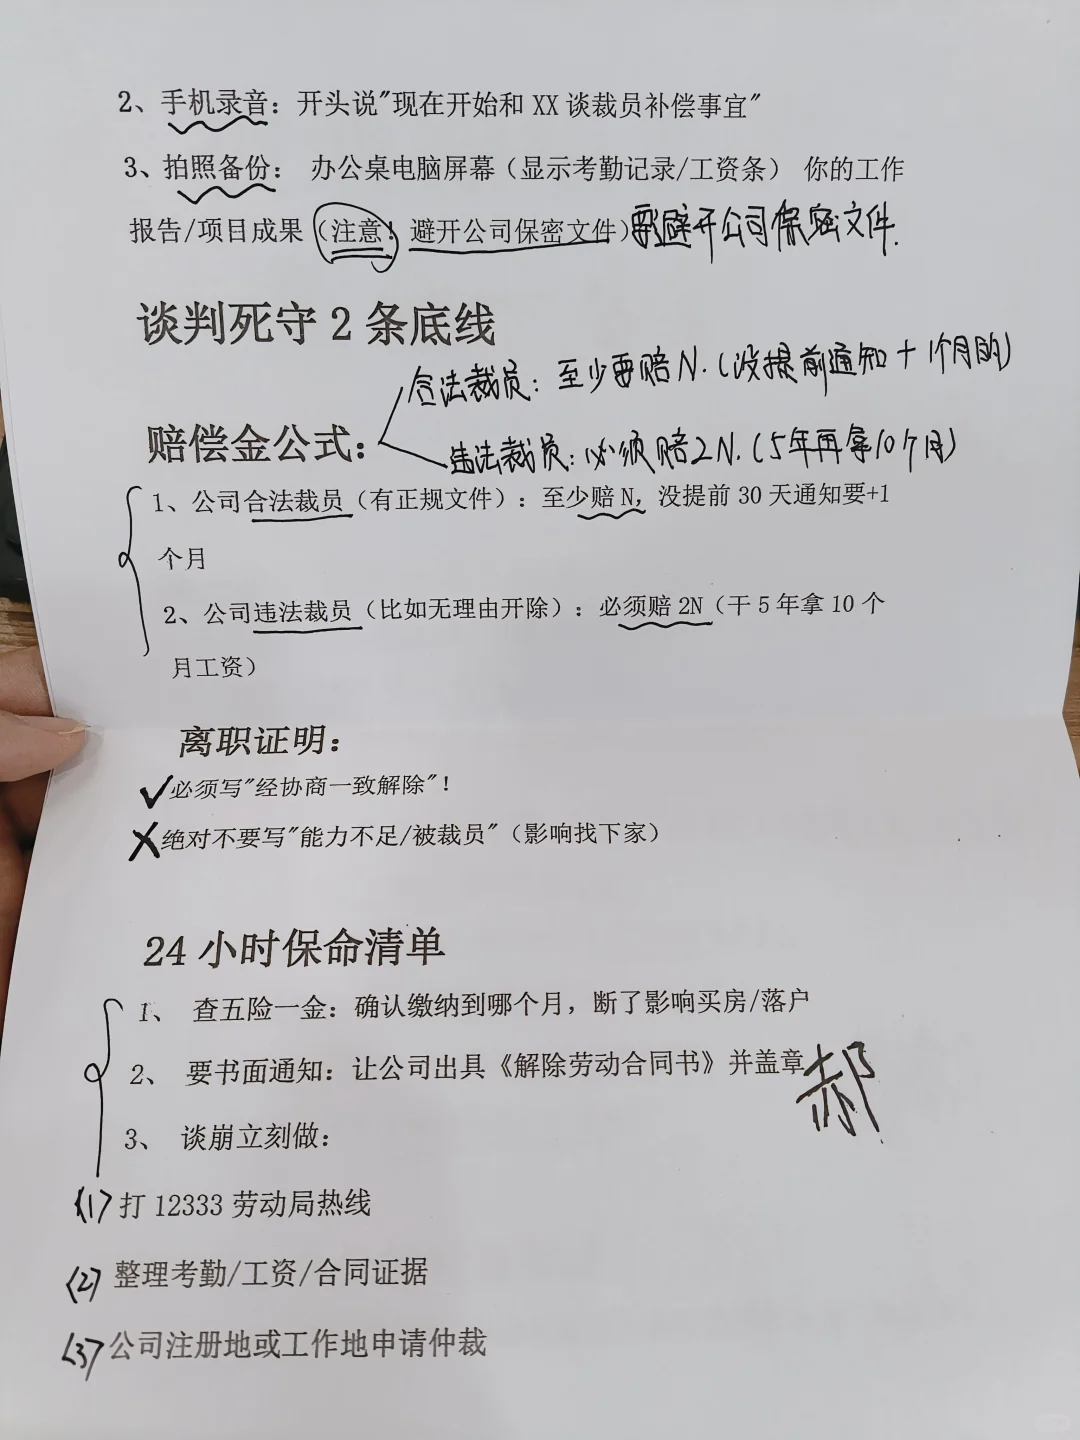 2、手机录音：开头说"现在开始和 XX 谈裁员补偿事宜"
3、拍照备份： 办公桌电脑屏幕（显示考勤记录/工资条） 你的工作
报告/项目成果（注意！避开公司保密文件）要避开公司保密文件.
谈判死守 2 条底线
合法裁员：至少要赔N.（没提前通知+1个月的）
赔偿金公式：
违法裁员：必须赔2N.（5年再拿10个月）
1、公司合法裁员（有正规文件）：至少赔 N，没提前 30 天通知要+1
个月
2、公司违法裁员（比如无理由开除）：必须赔 2N（干 5 年拿 10 个
月工资）
离职证明：
✓必须写"经协商一致解除"！
✗绝对不要写"能力不足/被裁员"（影响找下家）
24 小时保命清单
1、 查五险一金：确认缴纳到哪个月，断了影响买房/落户
2、 要书面通知：让公司出具《解除劳动合同书》并盖章
郝
3、 谈崩立刻做：
(1)打 12333 劳动局热线
(2)整理考勤/工资/合同证据
(3)公司注册地或工作地申请仲裁